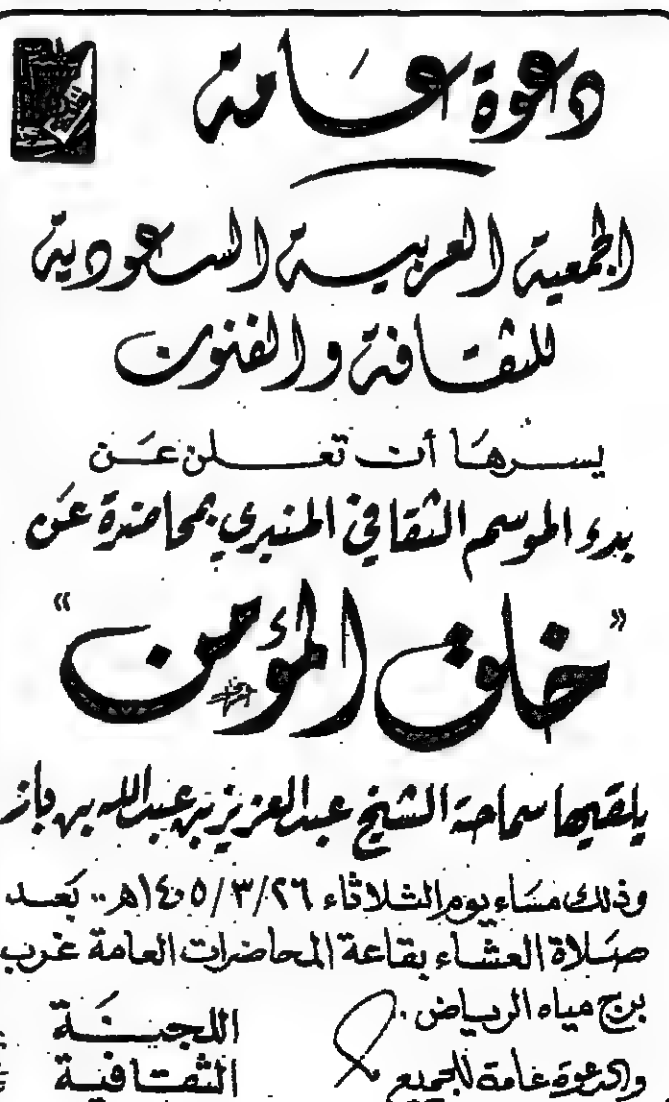 دعوة عامة
الجمعية العربية السعودية
للثقافة والفنون
يسرها أن تعلن عن
بدء الموسم الثقافي المنبري بمحاضرة عن
"خلق المؤمن"
يلقيها سماحة الشيخ عبدالعزيز بن عبدالله بن باز
وذلك مساء يوم الثلاثاء ١٤٠٥/٣/٢٦هـ.. بعد
صلاة العشاء بقاعة المحاضرات العامة غرب
برج مياه الرياض.
والدعوة عامة للجميع
اللجنة
الثقافية